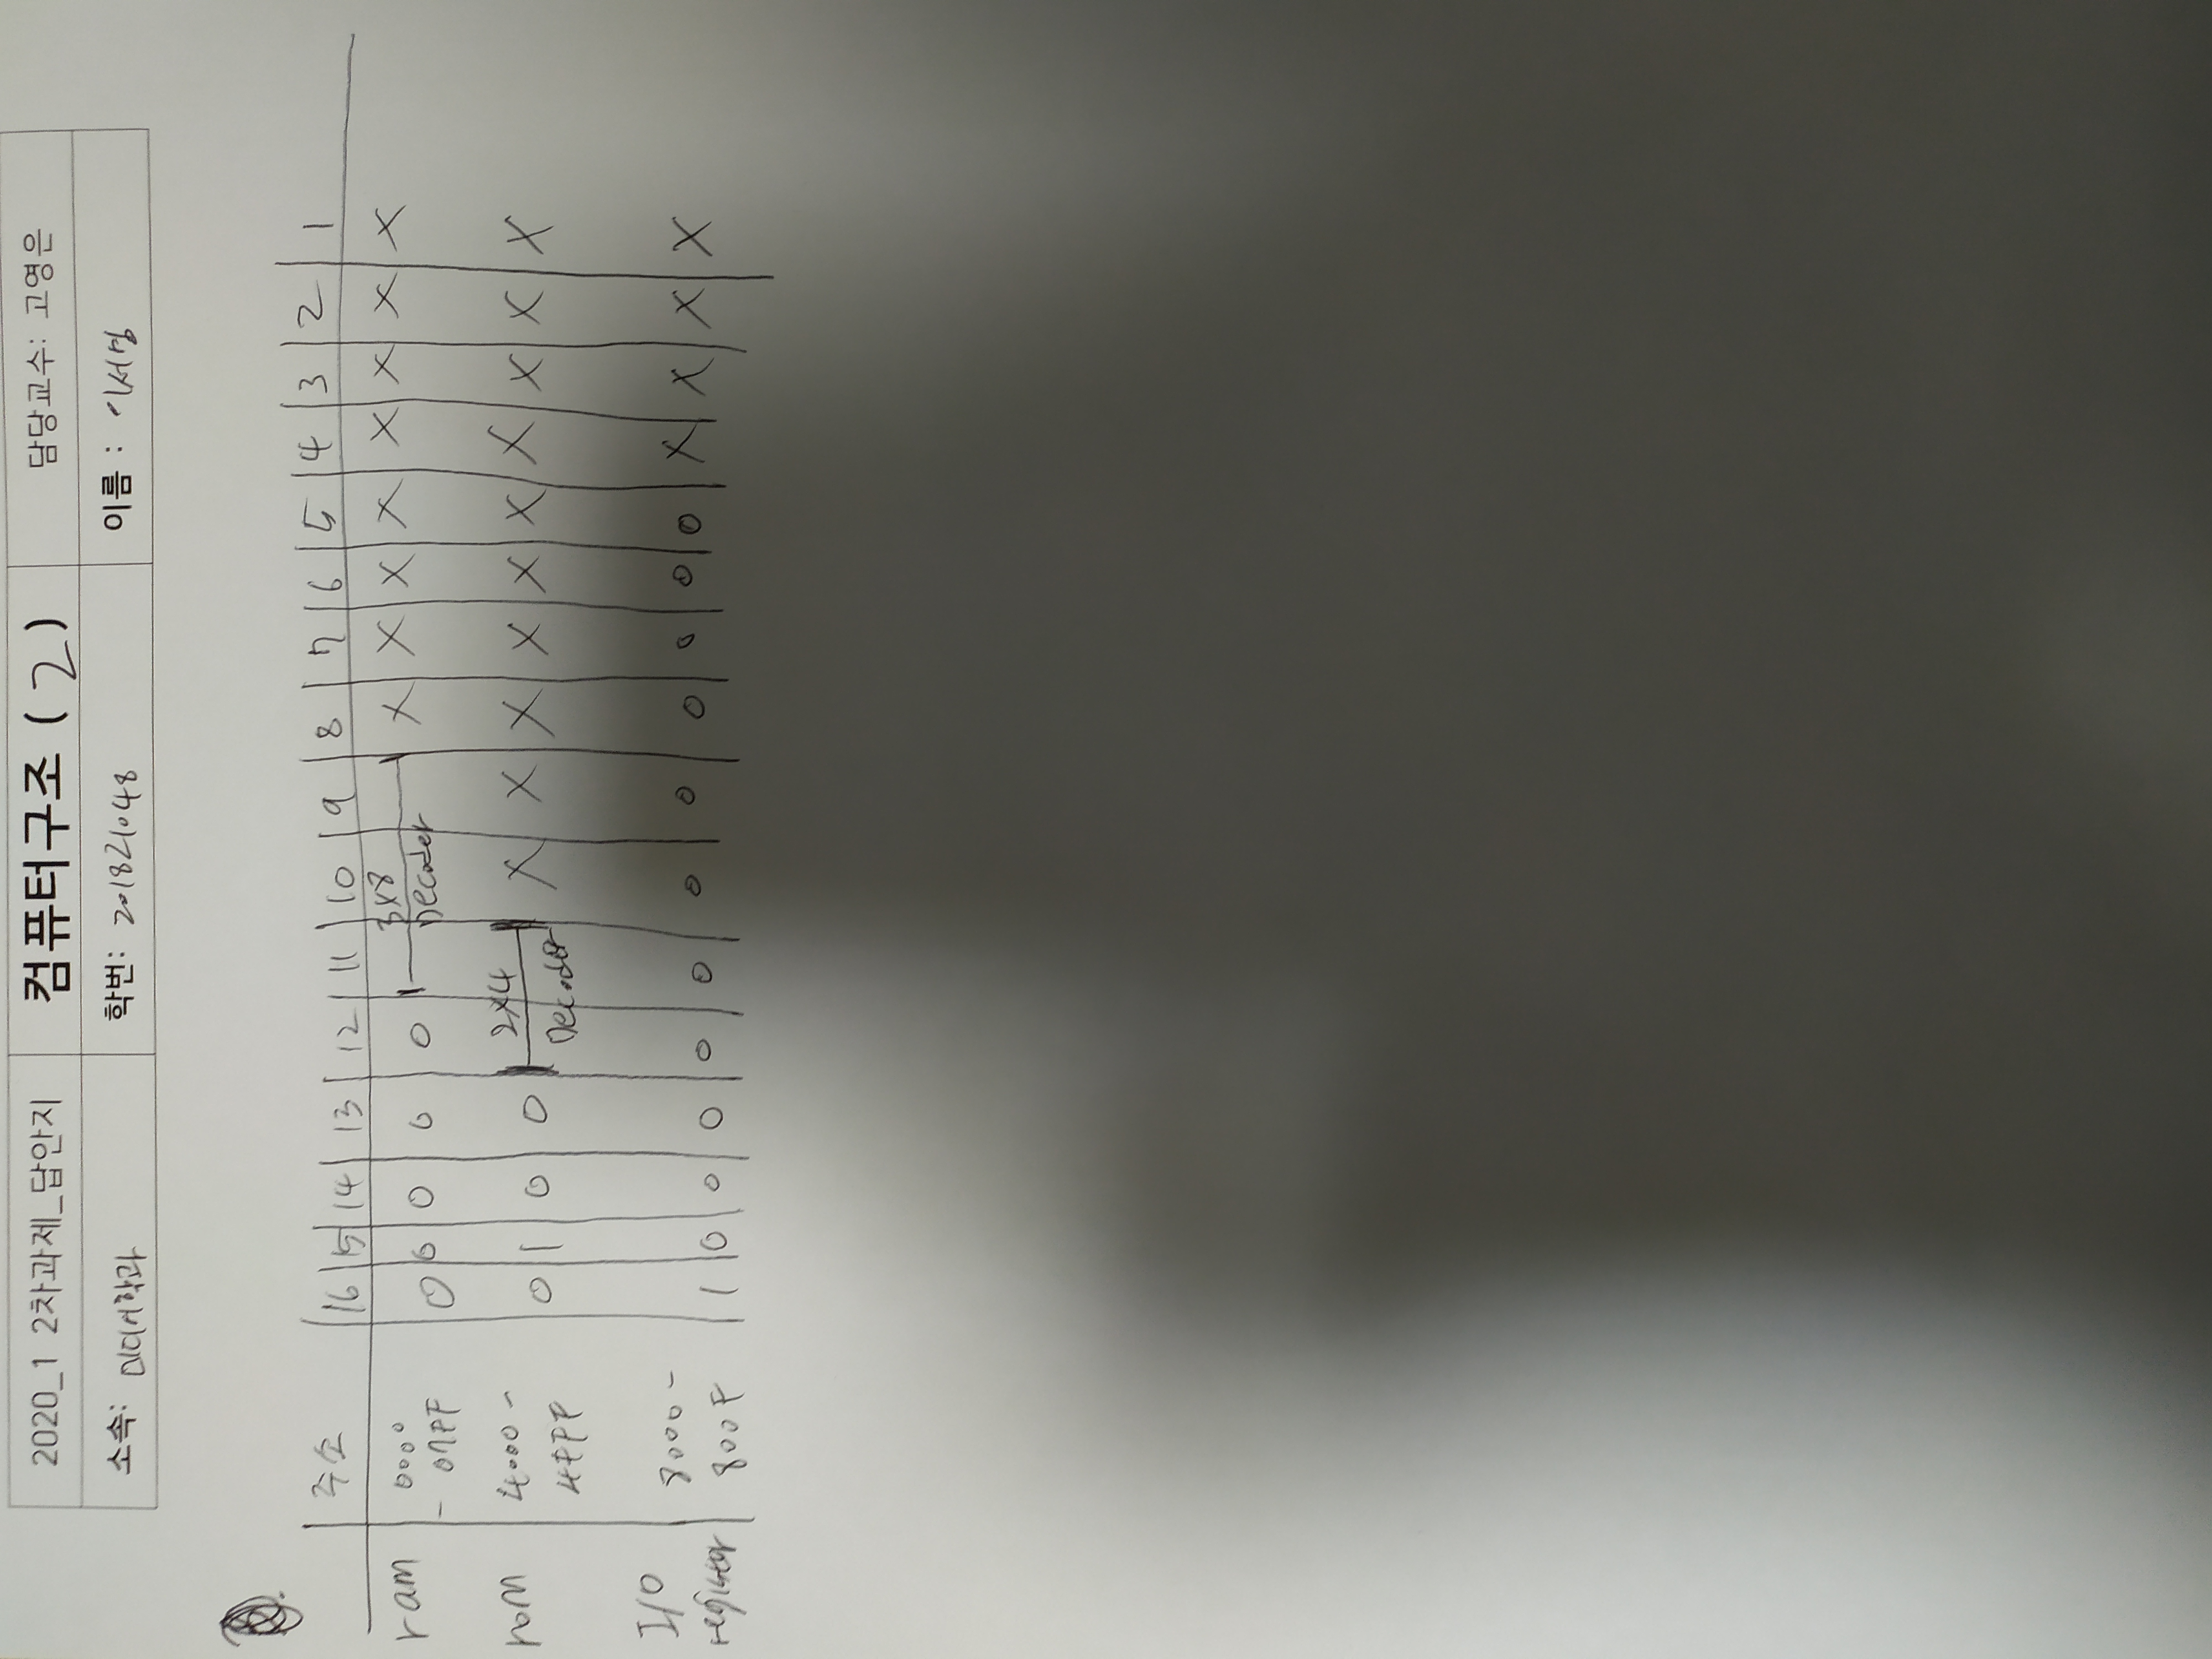 2020_1 2차과제_답안지 컴퓨터구조 ( 2 ) 담당교수: 고영은
소속: 미디어학과 학번: 201821048 이름 : 이서영
주소 16 15 14 13 12 11 10 9 8 7 6 5 4 3 2 1
ram 0000 - 07FF 0 0 0 0 0 3x8 Decoder X X X X X X X X
rom 4000 - 4FFF 0 1 0 0 2x4 Decoder X X X X X X X X X X
I/O register 8000 - 800F 1 0 0 0 0 0 0 0 0 0 0 0 X X X X